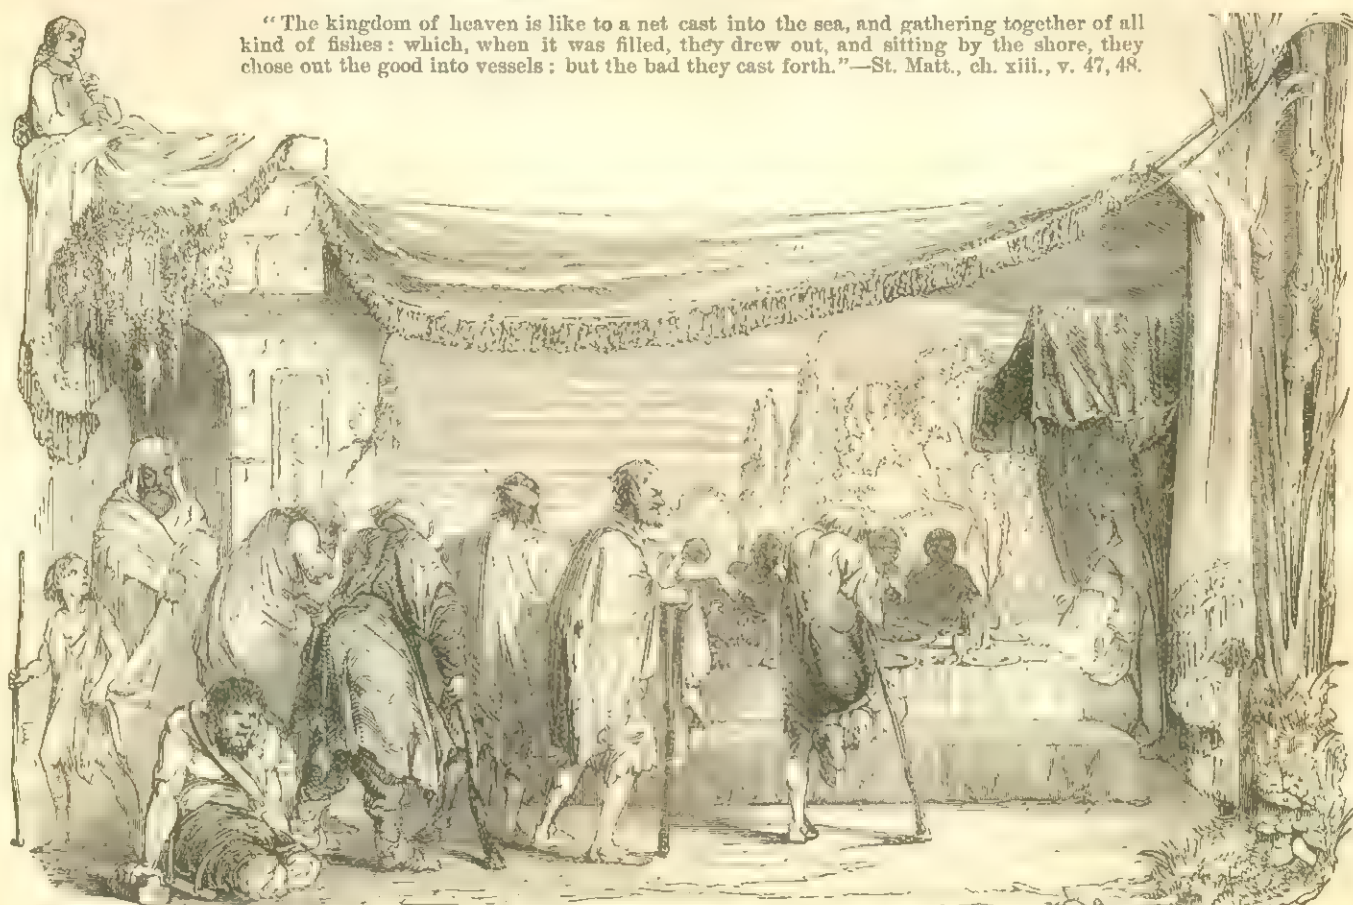 “The kingdom of heaven is like to a net cast into the sea, and gathering together of all
kind of fishes: which, when it was filled, they drew out, and sitting by the shore, they
chose out the good into vessels: but the bad they cast forth.”—St. Matt., ch. xiii., v. 47, 48.